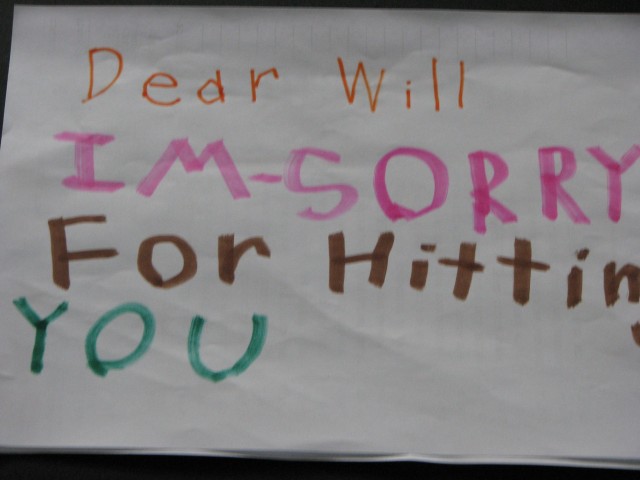 Dear Will
IM-SORRY
For Hitting
YOU